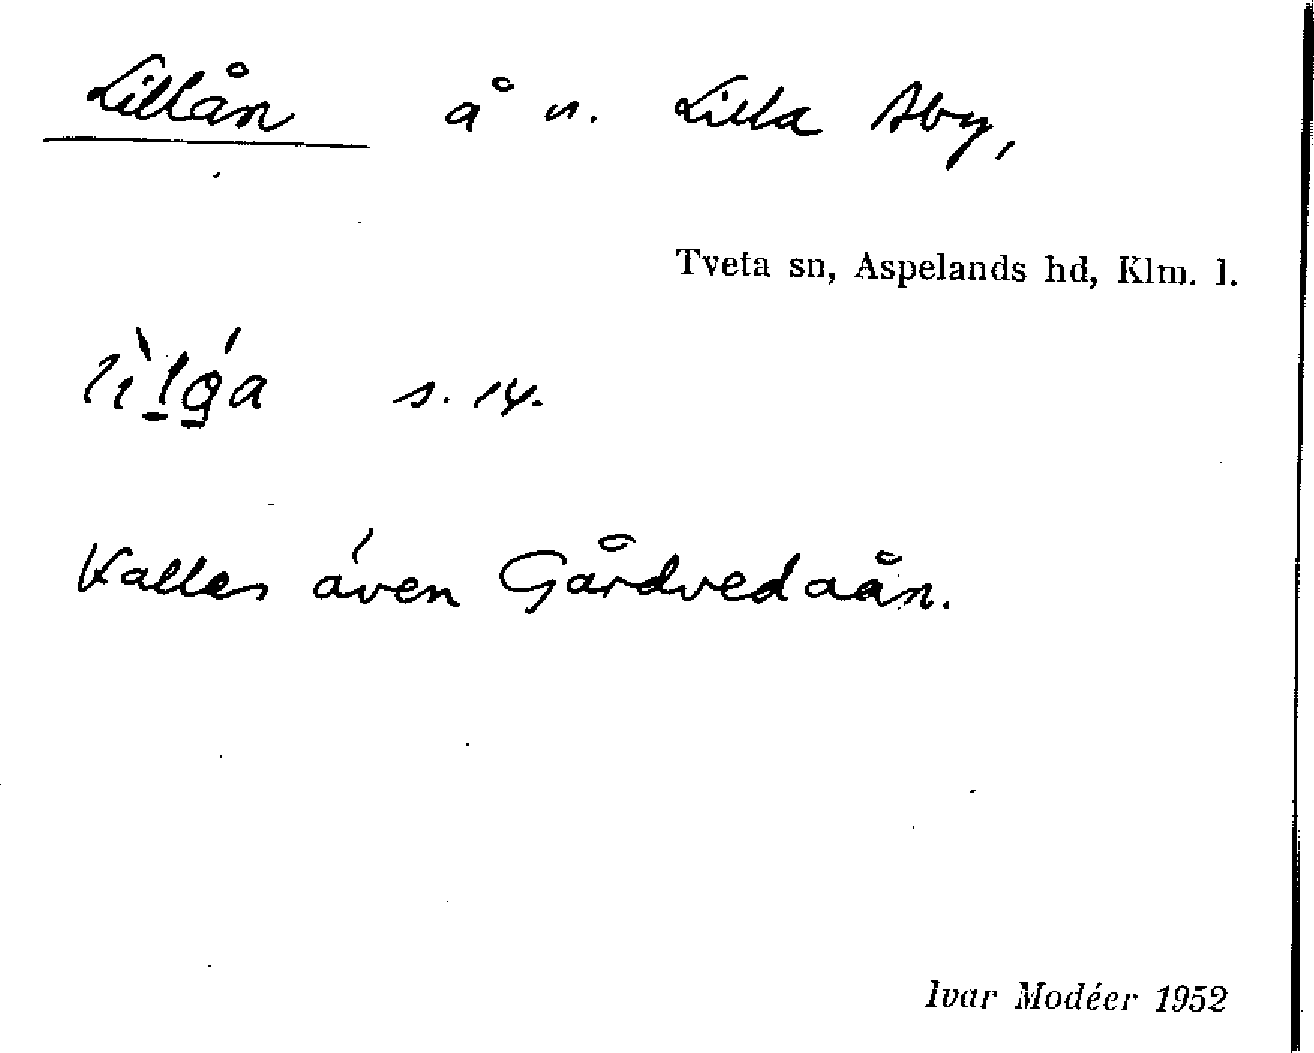 Lillån å n. Lilla Aby,
Tveta sn, Aspelands hd, Klm. l.
s. 14.
Kallas även Gårdvedaån.
Ivar Modéer 1952